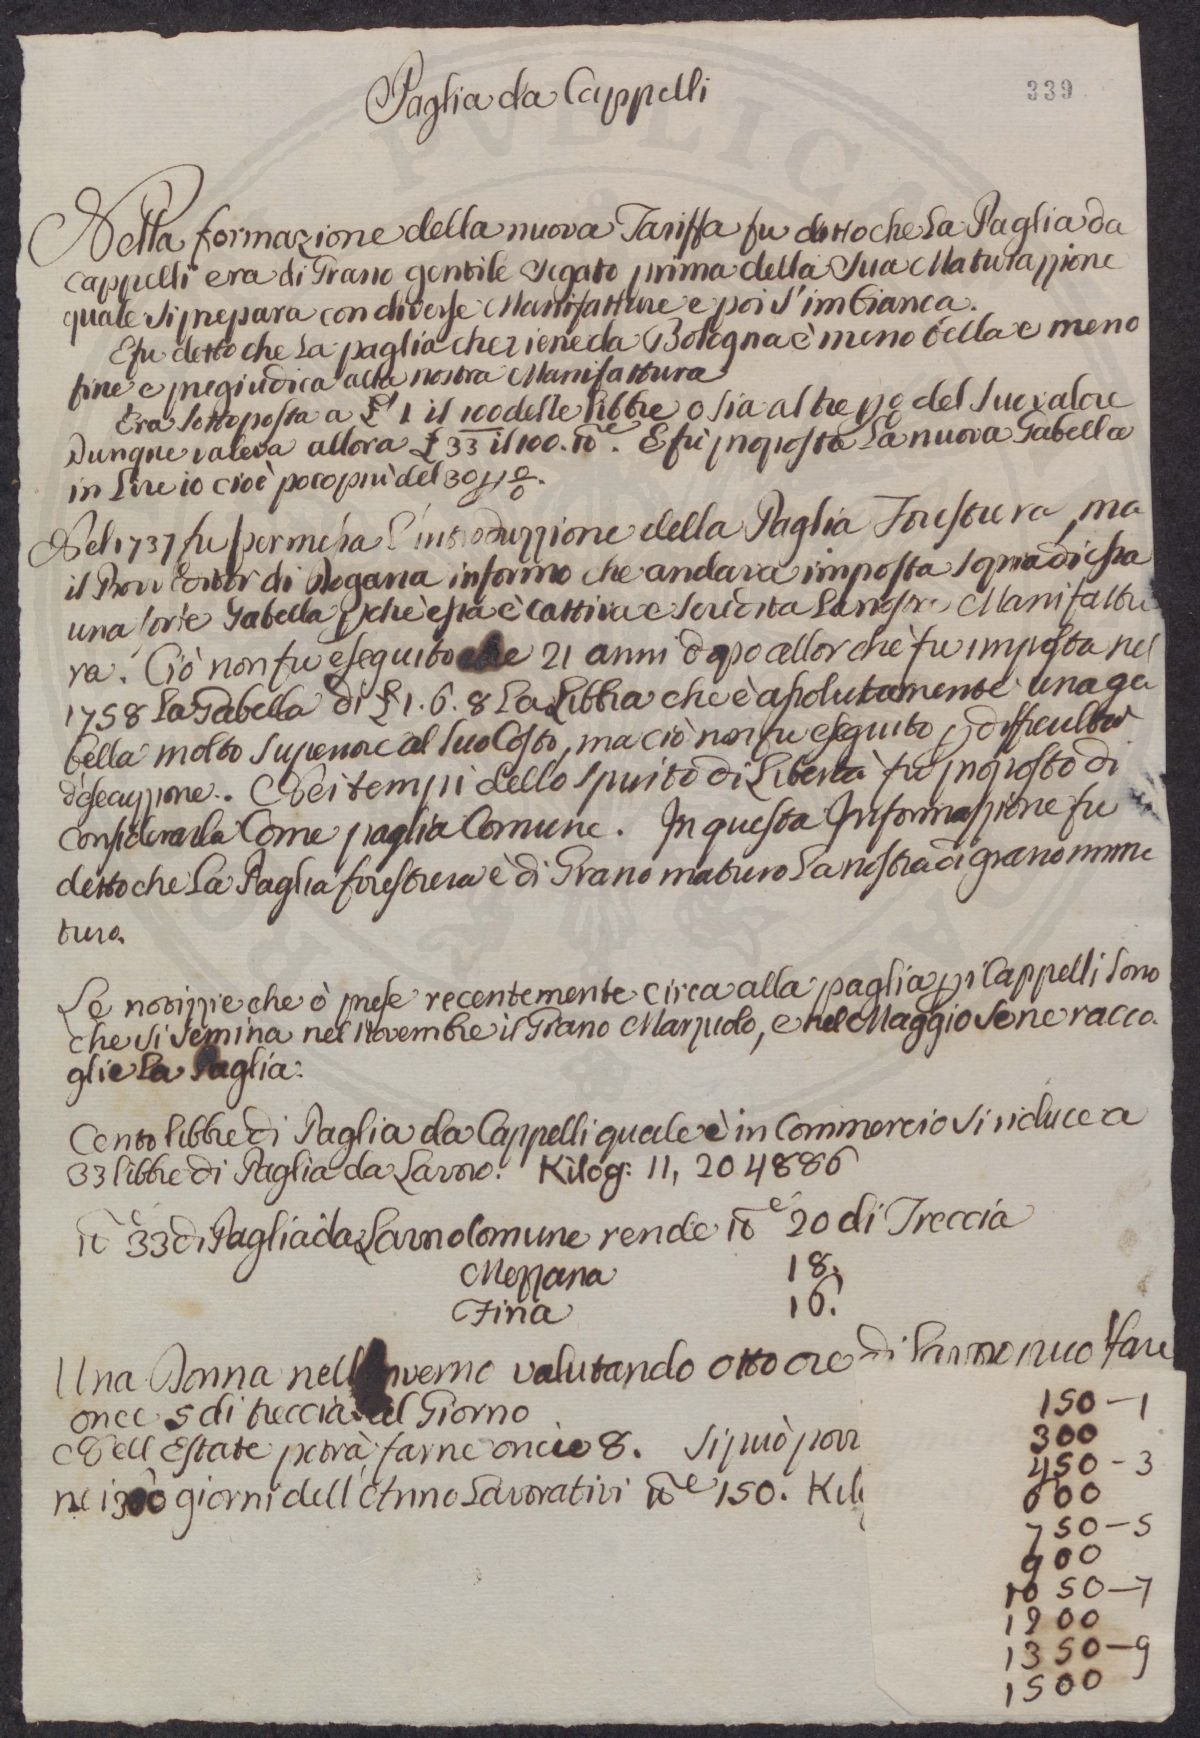 Paglia da Cappelli
339
Nella formazione della nuova Tariffa fu detto che La Paglia da
cappelli era di Grano gentile segato prima della Sua Maturazzione
quale si prepara con diverse Manifatture e poi s'imbianca.
E fu detto che La paglia che viene da Bologna è meno bella e meno
fine e pregiudica alla nostra Manifattura
Era sottoposta a £ 1 il 100 delle libbre o sia al tre p% del suo valore
Dunque valeva allora £ 33 il 100. lbe. E fù proposta La nuova Gabella
in Lire 10 cioè poco più del 30 p%.
Nel 1737 fu permessa l'introduzzione della Paglia Forestiera, ma
il Provveditor di Dogana informò che andava imposta sopra di essa
una forte Gabella p che essa è Cattiva e scredita La nostra Manifattu
ra. Ciò non fu eseguito che 21 anni dopo allor che fu imposta nel
1758 La Gabella di £ 1. 6. 8 La Libbra che è assolutamente una ga
bella molto superiore al suo Costo, ma ciò non fu eseguito p difficultà
d'esecuzzione. Nei tempi dello spirito di Libertà fu proposto di
considerarla Come paglia Comune. In questa Informazzione fu
detto che La Paglia forestiera è di Grano maturo La nostra di grano imma
turo.
Le notizzie che ò prese recentemente circa alla paglia p i Cappelli sono
che si semina nel Novembre il Grano Marzuolo, e nel Maggio se ne racco-
glie La Paglia.
Cento libbre di Paglia da Cappelli quale è in Commercio si riduce a
33 libbre di Paglia da Lavoro. Kilog: 11, 204886
lbe 33 di Paglia da Lavoro Comune rende lbe 20 di Treccia
Mezzana 18.
Fina 16.
Una Donna nell'Inverno valutando otto ore di Lavoro può fare
once 5 di treccia al Giorno
Nell Estate potrà farne oncie 8. Si può
nei 300 giorni dell'Anno Lavorativi lbe 150.
150 - 1
300
450 - 3
600
750 - 5
900
1050 - 7
1200
1350 - 9
1500